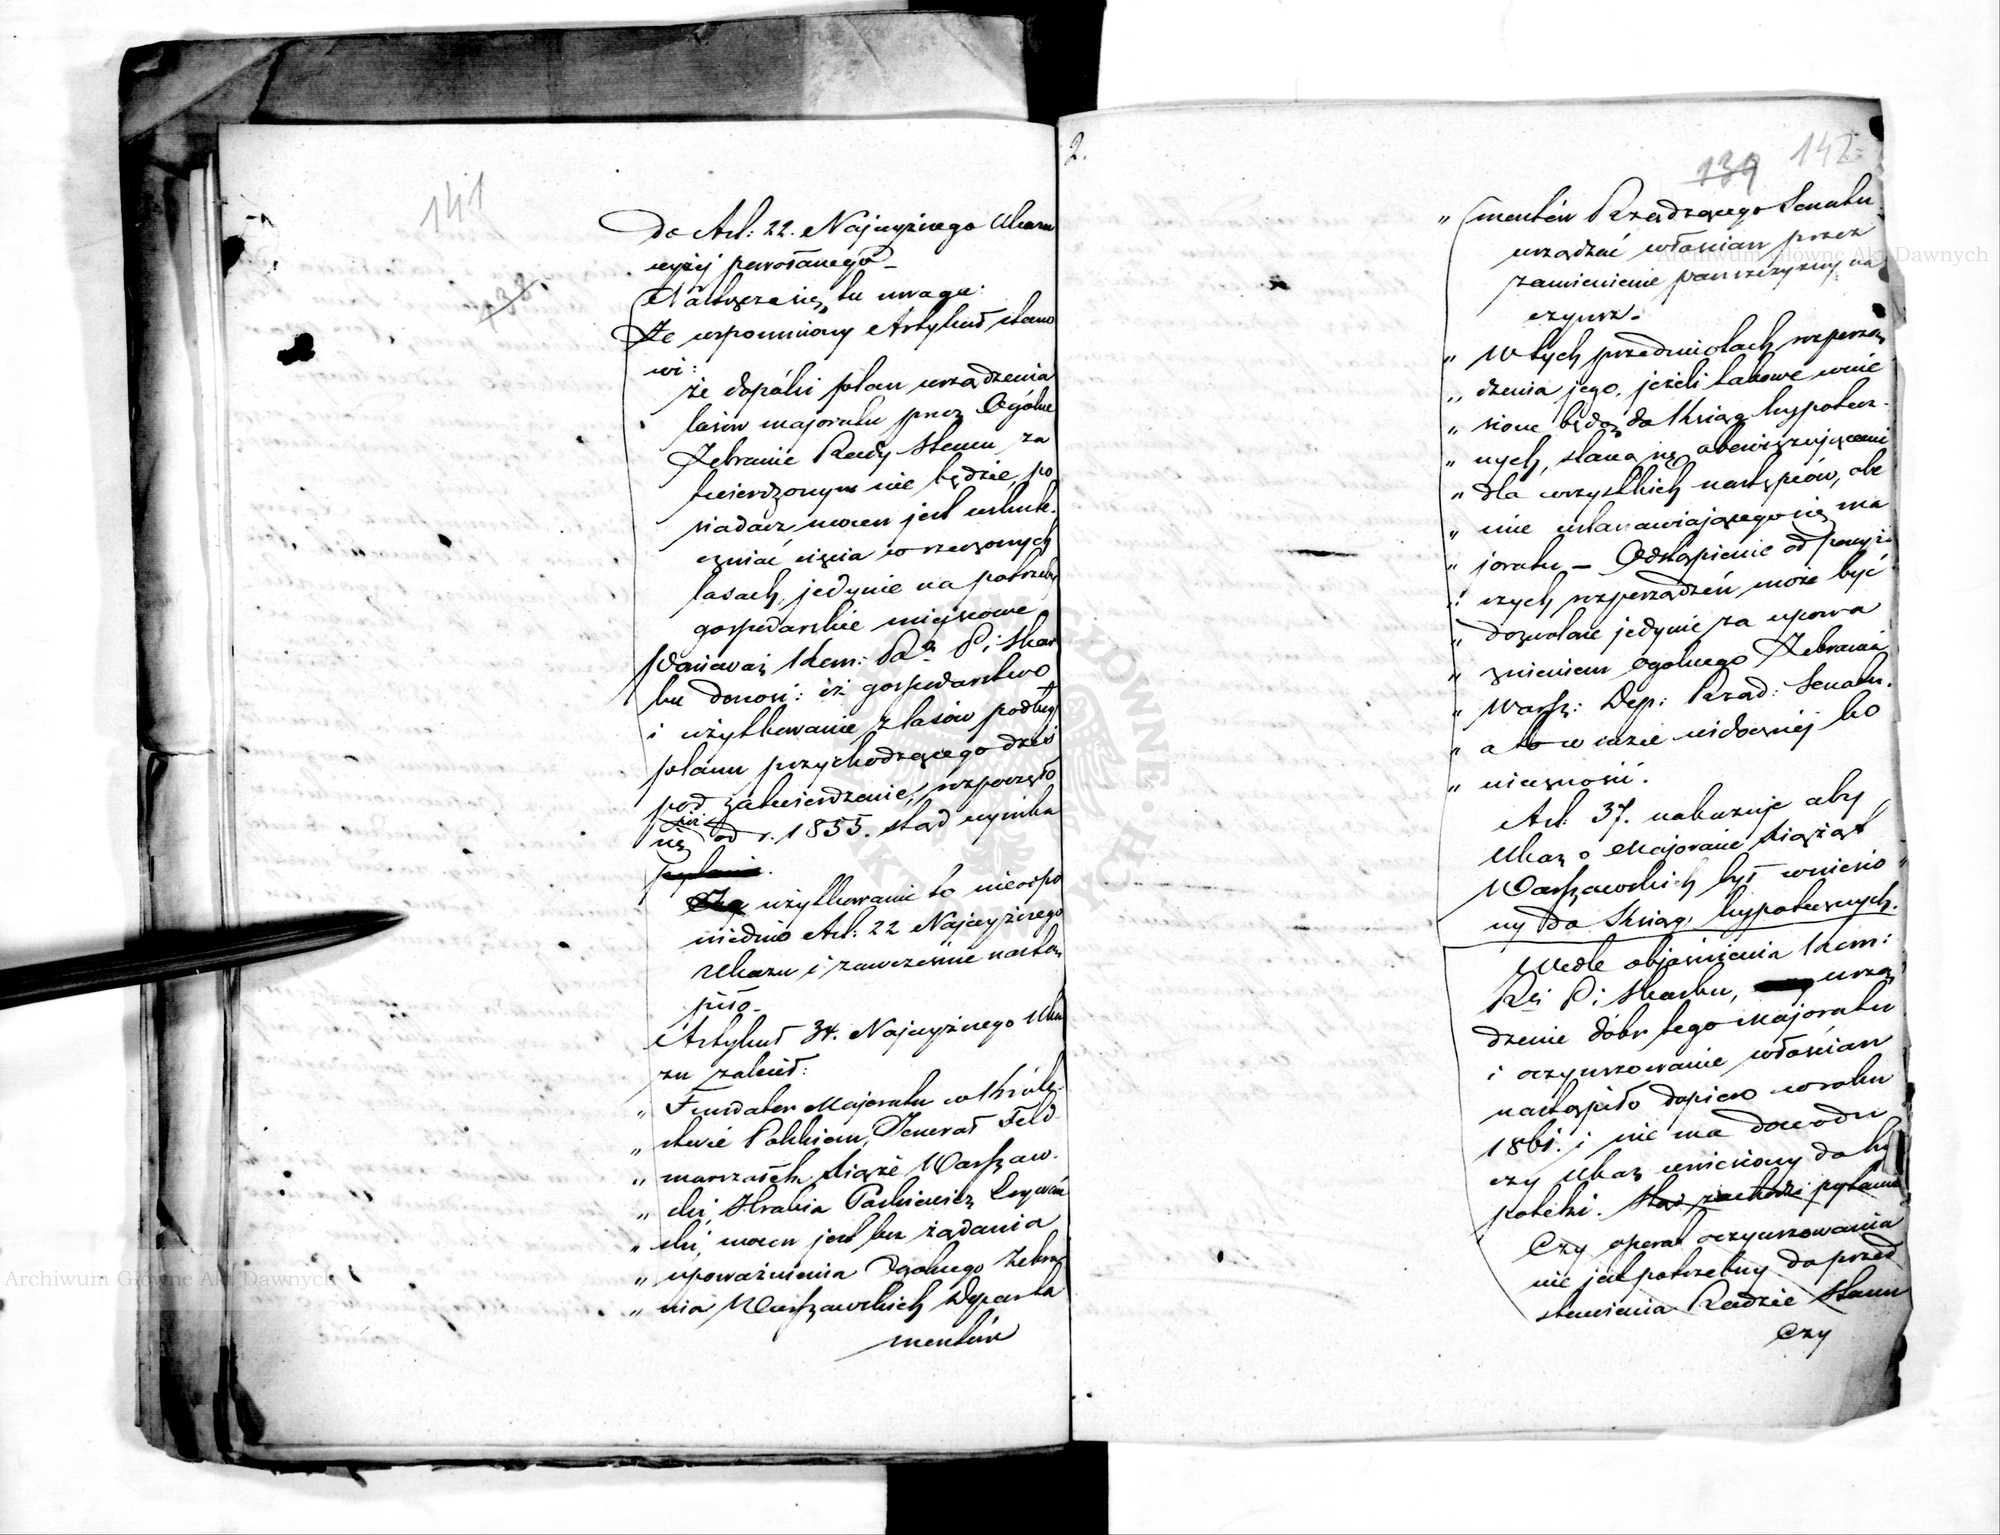 141
138
do Art: 22. Najwyższego Ukazu
wyżej powołanego –
Nastręcza się tu uwaga:
Że wspomniony Artykuł stano
wi:
że dopóki plan urządzenia
lasów majoratu przez Ogólne
Zebranie Rady Stanu za
twierdzonym nie będzie, po
siadacz mocen jest uskute-
czniać cięcia w rzeczonych
lasach, jedynie na potrzeby
gospodarskie miejscowe
Ponieważ Kom: P: i Skar
bu donosi: iż gospodarstwo
i użytkowanie z lasów podług
planu przychodzącego dziś
pod zatwierdzenie, rozpoczęło
się już od r. 1855. stąd wynika
pytanie.
Czy użytkowanie to nieodpo
wiednio Art: 22 Najwyższego
Ukazu i zawcześnie nastą
piło –
Artykuł 34. Najwyższego Uka
zu
„ Fundator Majoratu w Króle-
„ stwie Polskiem, Jenerał Feld-
„ marszałek Książe Warszaw-
„ ski, Hrabia Paskiewicz Erywań
„ ski, mocen jest bez żądania
„ upoważnienia Ogólnego Zebra
„ nia Warszawskich Departa
mentów
2.
139 142
„ mentów Rządzącego Senatu
urządzać włościan przez
zamienienie pańszczyzny na
czynsz.
„ W tych przedmiotach rozporzą
„ dzenia jego, jeżeli takowe wnie
„ sione będą do Ksiąg hypotecz-
„ nych, staną się obowiązującemi
„ dla wszystkich następców, obe
„ cnie ustanawiającego się ma
„ joratu – Odstąpienie od powyż
„ szych rozporządzeń może być
„ dozwolone jedynie za upowa
„ żnieniem Ogólnego Zebrania
„ Warsz: Dep: Rząd: Senatu.
„ a to w razie widocznej ko
„ nieczności.
Art: 37. nakazuje aby
Ukaz o Majoracie Książąt
Warszawskich był wniesio
ny do Ksiąg hypotecznych.
Wedle objaśnienia Kom:
P: i Skarbu, urzą
dzenie dóbr tego Majoratu
i oczynszowanie włościan
nastąpiło dopiero w roku
1861. i nie ma dowodu
czy Ukaz wniesiony do hy
poteki. Stąd zachodzi pytanie
Czy operat oczynszowania
nie jest potrzebny do przed
stawienia Radzie Stanu
Czy
Archiwum Główne Akt Dawnych
Archiwum Główne Akt Dawnych